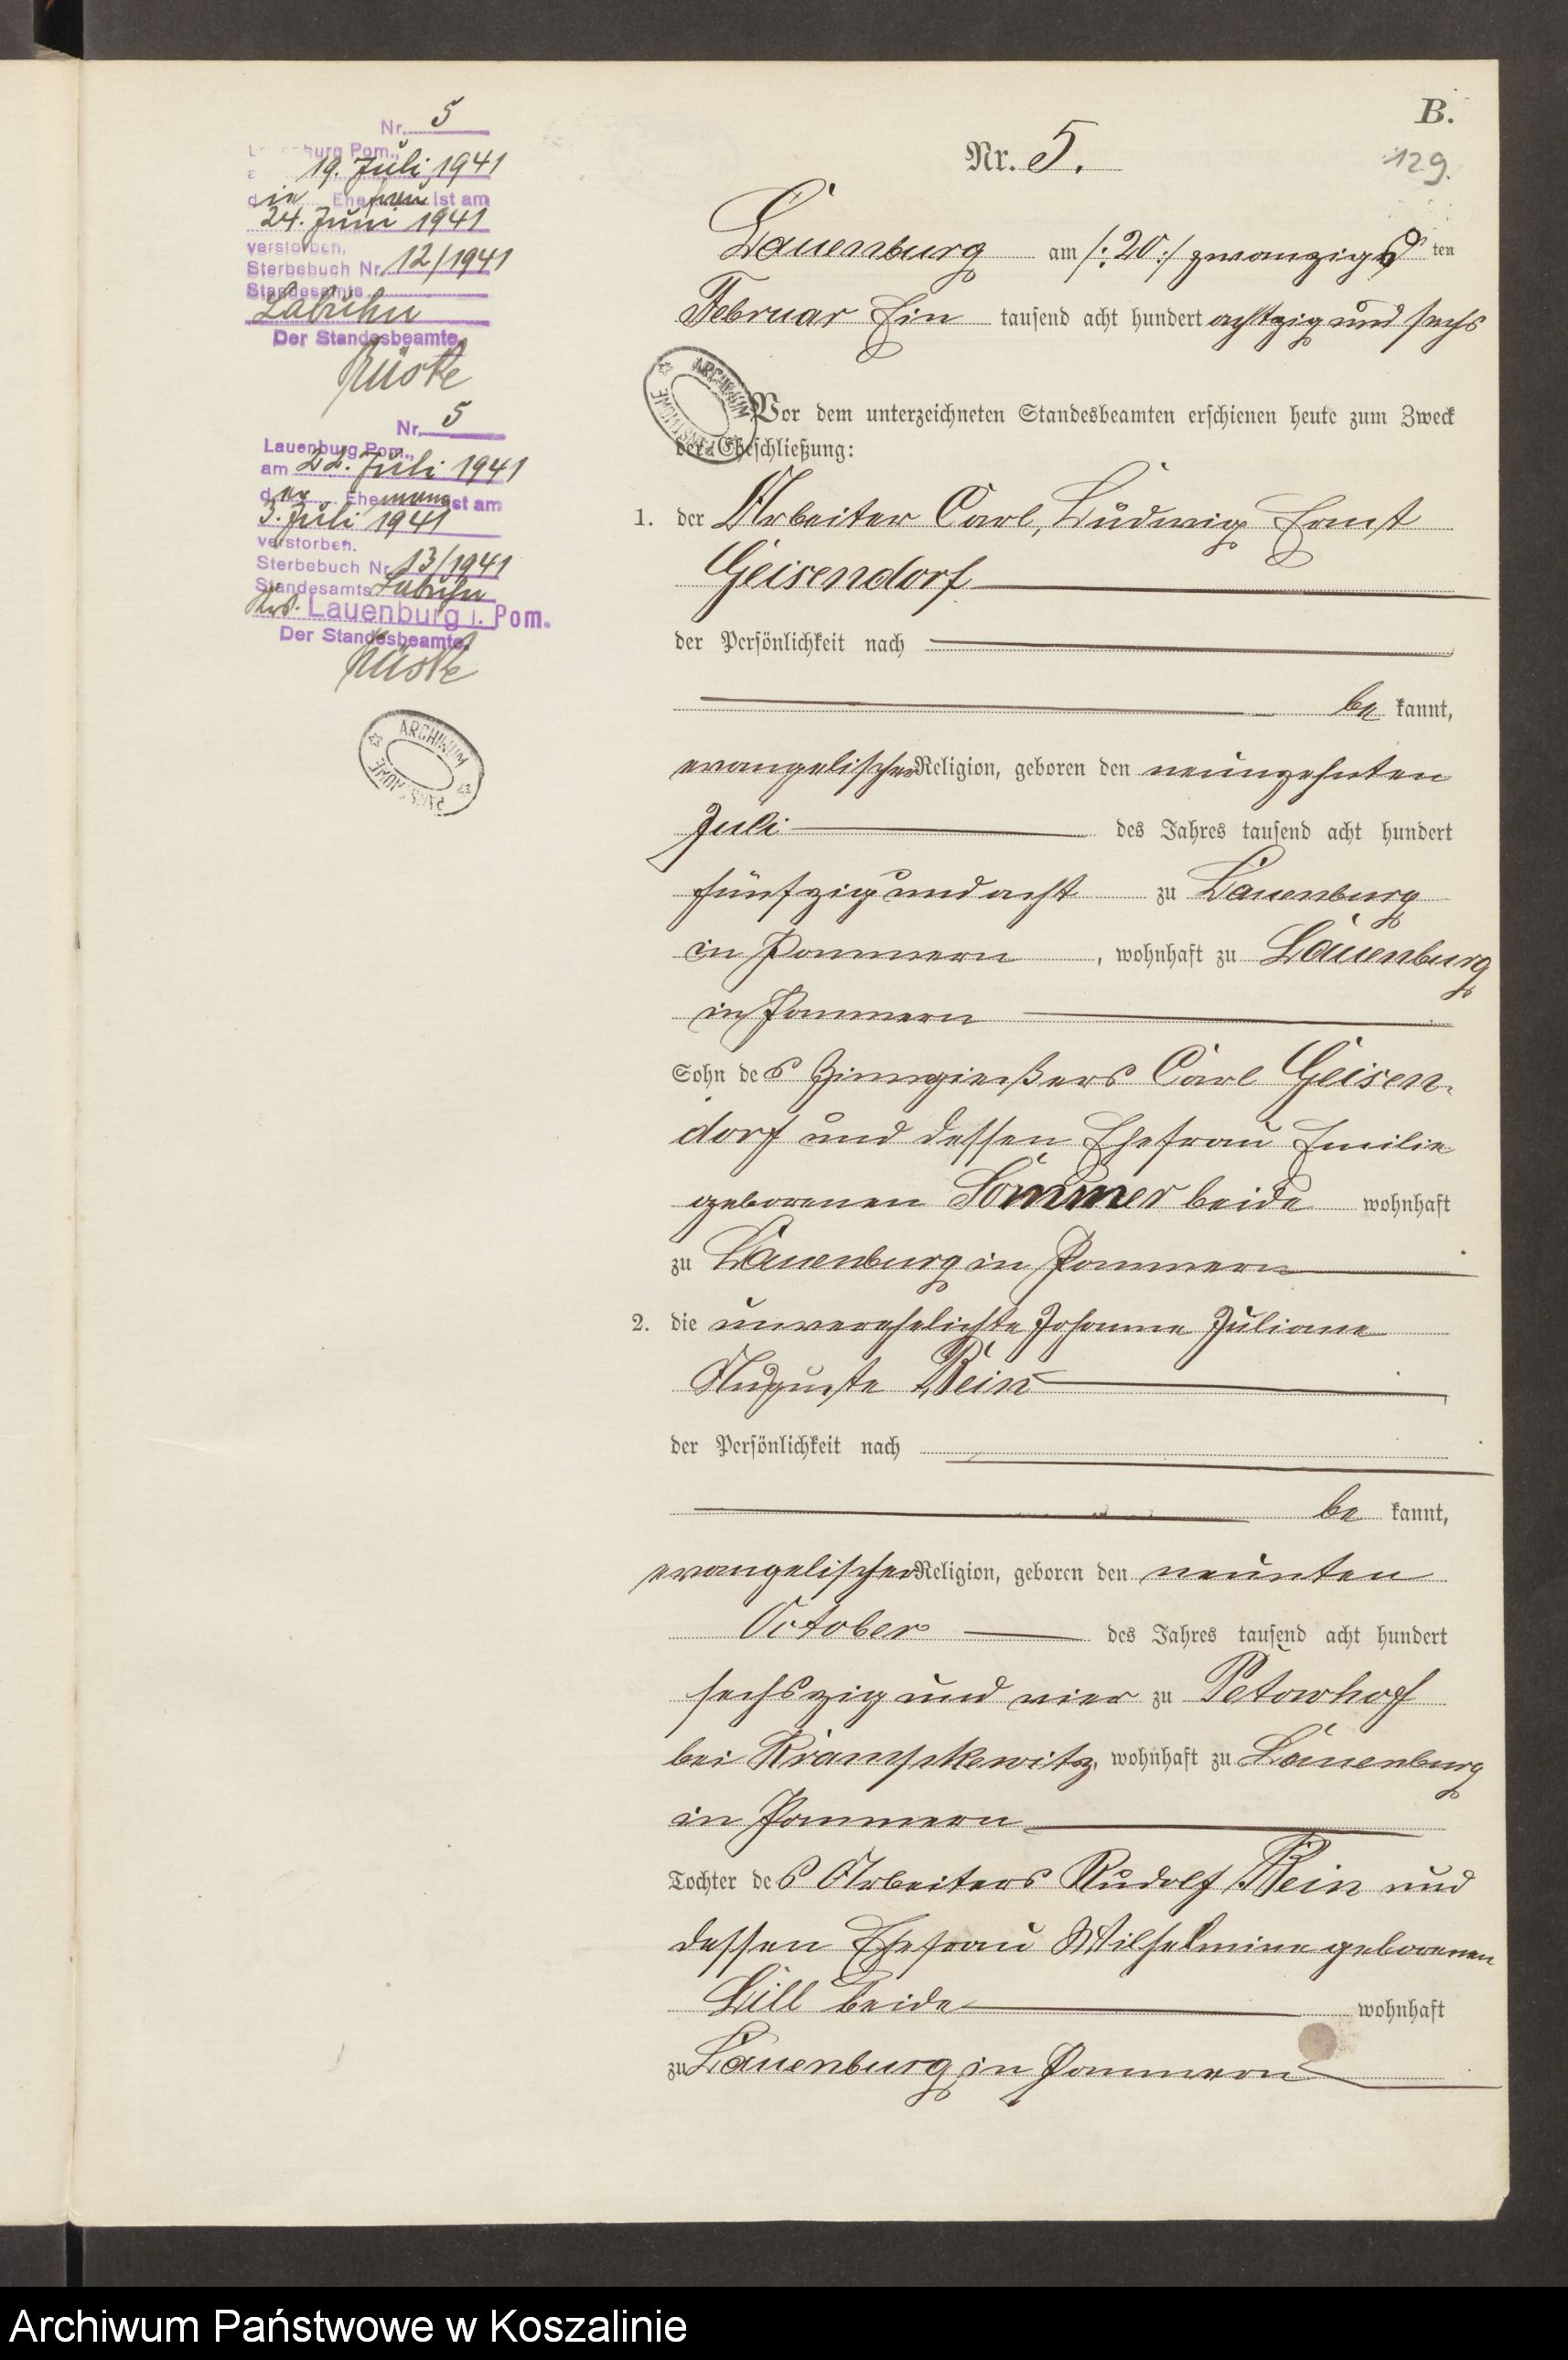 B.
129.
Nr. 5.
Lauenburg am /:20:/ zwanzigsten
Februar Ein tausend acht hundert achtzig und sechs
Vor dem unterzeichneten Standesbeamten erschienen heute zum Zweck
der Eheschließung:
1. der Arbeiter Carl, Ludwig Ernst
Geisendorf
der Persönlichkeit nach
be kannt,
evangelischer Religion, geboren den neunzehnten
Juli des Jahres tausend acht hundert
fünfzig und acht zu Lauenburg
in Pommern, wohnhaft zu Lauenburg
in Pommern
Sohn des Zinngießers Carl Geisen-
dorf und dessen Ehefrau Emilie
geborenen Sommer beide wohnhaft
zu Lauenburg in Pommern
2. die unverehelichte Johanne Juliane
Auguste Rein
der Persönlichkeit nach
be kannt,
evangelischer Religion, geboren den neunten
October des Jahres tausend acht hundert
sechszig und vier zu
bei Krampkewitz, wohnhaft zu Lauenburg
in Pommern
Tochter des Arbeiters Rudolf Rein und
dessen Ehefrau Wilhelmine geborenen
Lill beide wohnhaft
zu Lauenburg in Pommern
Nr. 5
Lauenburg Pom.,
19. Juli 1941
die Ehefrau ist am
24. Juni 1941
verstorben.
Sterbebuch Nr. 12/1941
Standesamts
Labuhn
Der Standesbeamte.
Nr. 5
Lauenburg Pom.,
am 22. Juli 1941
der Ehemann ist am
3. Juli 1941
verstorben.
Sterbebuch Nr. 13/1941
Standesamts Labuhn
Krs. Lauenburg i. Pom.
Der Standesbeamte.
ARCHIWUM
ARCHIWUM
Archiwum Państwowe w Koszalinie